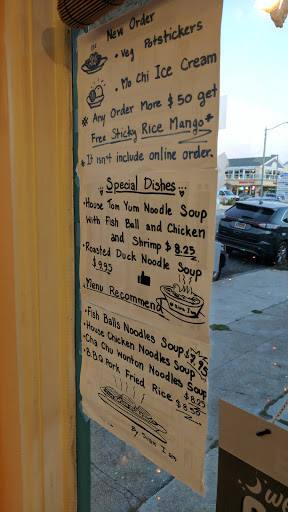 New Order
• Veg Potstickers
• Mo Chi Ice Cream
* Any Order More $50 get
Free Sticky Rice Mango *
* It isn't include online order.
Special Dishes
• House Tom Yum Noodle Soup
with Fish Ball and Chicken
and Shrimp $8.25
• Roasted Duck Noodle Soup
$9.95
Menu Recommend
• Fish Balls Noodles Soup $7.95
• House Chicken Noodles Soup
• Cha Chu Wonton Noodles Soup
$8.25
• B.B.Q Pork Fried Rice $8.50
By